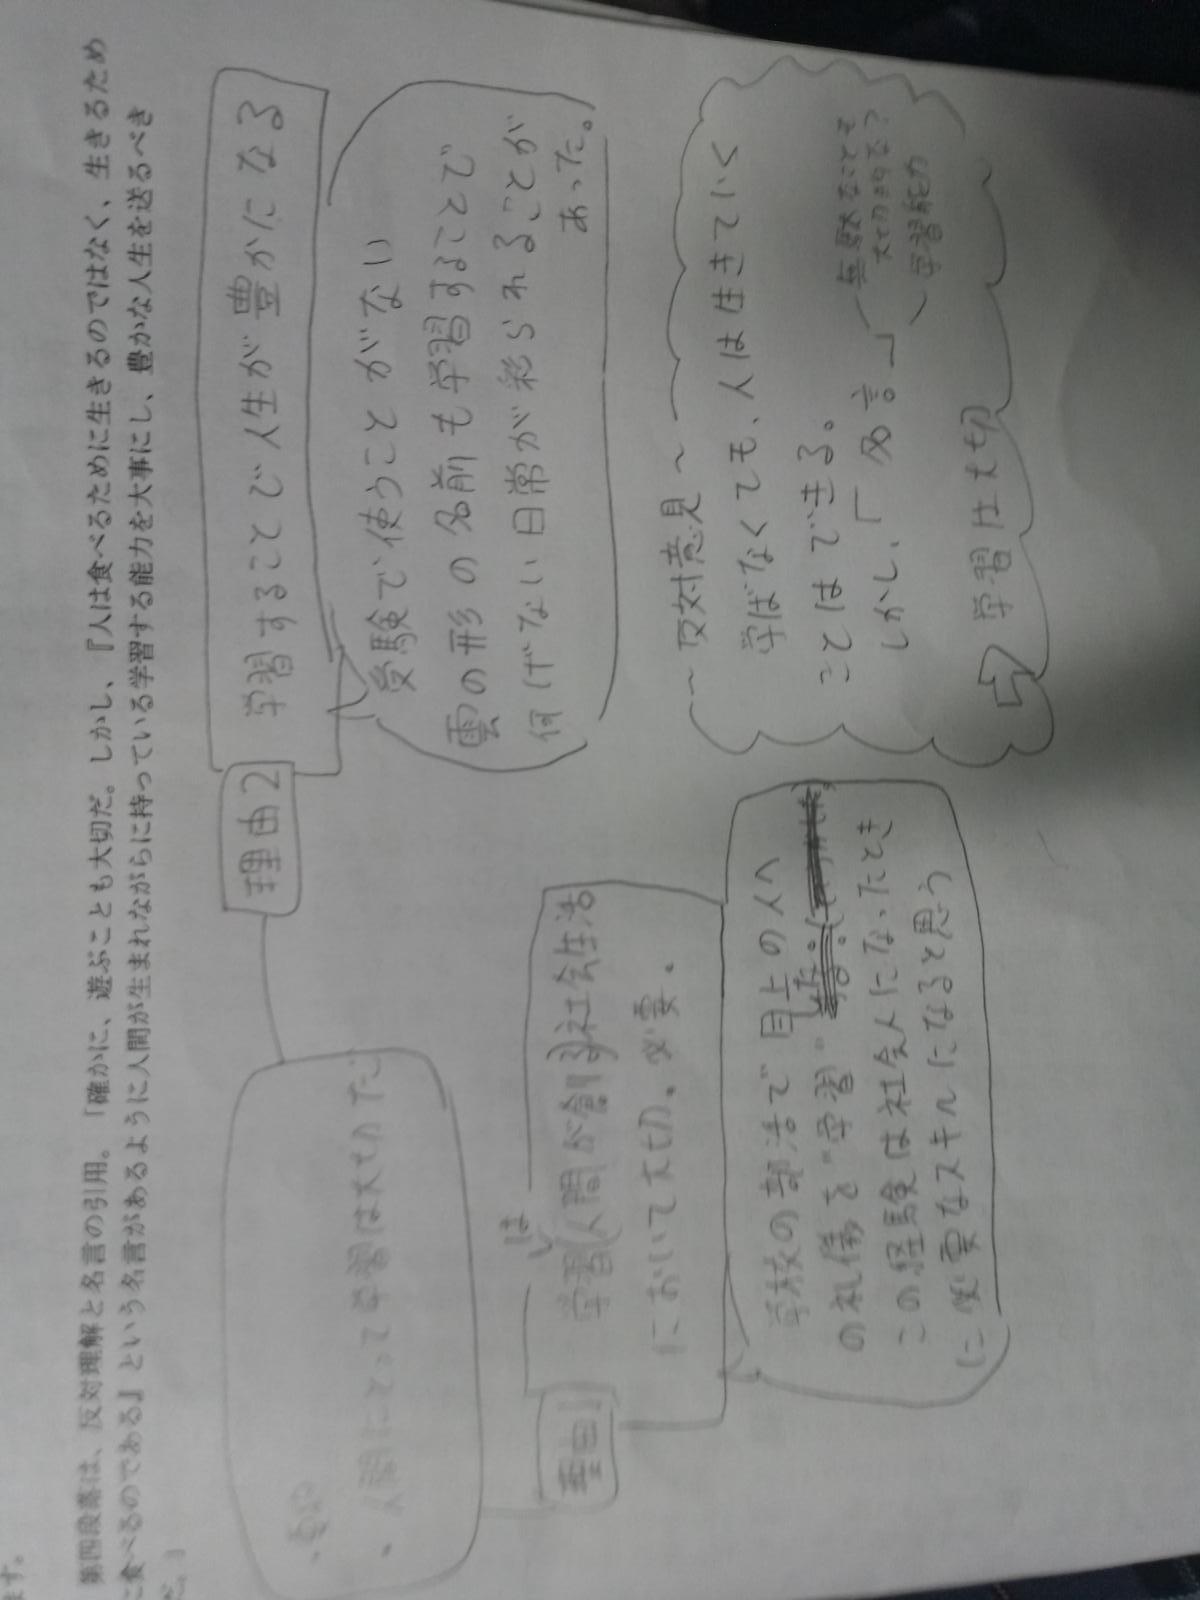 ます。
第四段落は、反対理解と名言の引用。「確かに、遊ぶことも大切だ。しかし、『人は食べるために生きるのではなく、生きるため
に食べるのである』という名言があるように人間が生まれながらに持っている学習する能力を大事にし、豊かな人生を送るべき
だ。」
理由2
学習することで人生が豊かになる
受験で使うことがない
雲の形の名前も学習することで
何げない日常が彩られることが
あった。
・人間にとって学習は大切だ
理由1
学習(人間が創る)社会生活
は
において大切。必要。
学校の部活で目上の人へ
の礼儀を"学習"した。
この経験は社会人になったとき
に必要なスキルになると思う
~~反対意見~~
学ばなくても、人は生きていく
ことはできる。
しかし、「名言」
無駄なことも
大切的な?
学習能力
学習は大切